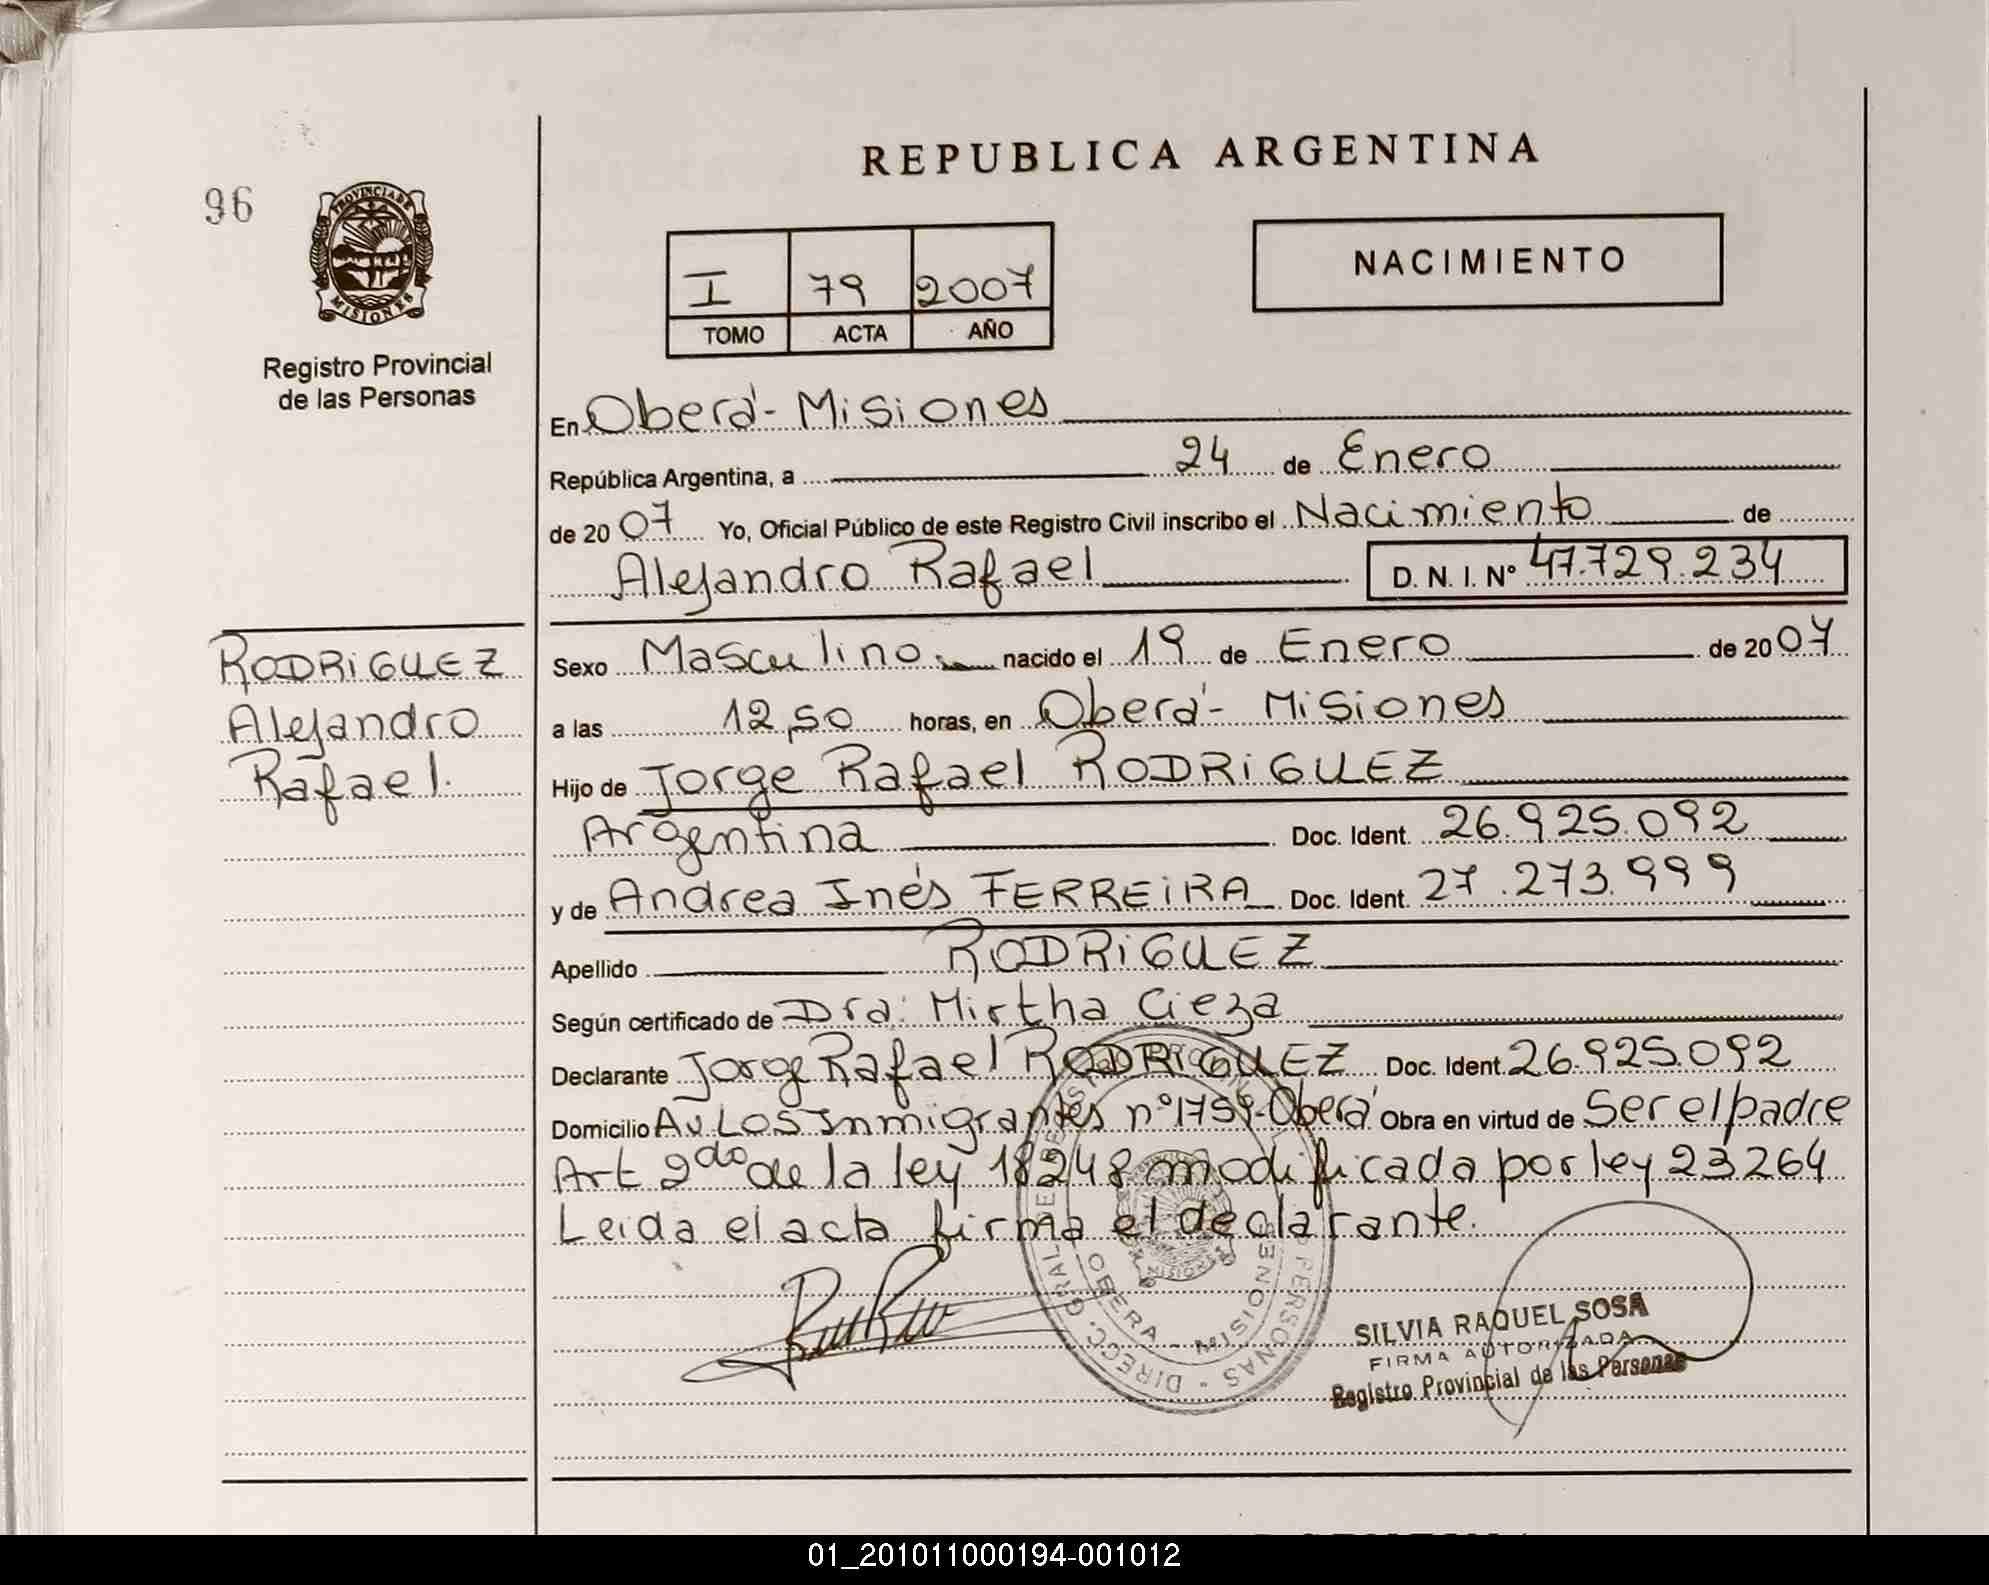 REPUBLICA ARGENTINA
96
PROVINCIA DE
MISIONES
Registro Provincial
de las Personas
I 79 2007
TOMO ACTA AÑO
NACIMIENTO
En Oberá - Misiones
República Argentina, a 24 de Enero
de 2007 Yo, Oficial Público de este Registro Civil inscribo el Nacimiento de
Alejandro Rafael D. N. I. Nº 47.729.234
RODRiGUEZ
Alejandro
Rafael.
Sexo Masculino nacido el 19 de Enero de 2007
a las 12,50 horas, en Oberá - Misiones
Hijo de Jorge Rafael RODRiGUEZ
Argentina Doc. Ident. 26.925.092
y de Andrea Inés FERREiRA Doc. Ident. 27.273.999
Apellido RODRiGUEZ
Según certificado de Dra. Mirtha Cieza
Declarante Jorge Rafael RODRiGUEZ Doc. Ident. 26.925.092
Domicilio Av LOS Inmigrantes nº 1759-Oberá Obra en virtud de Ser el padre
Art 2do de la ley 18248 modificada por ley 23264
Leida el acta firma el declarante.
OBERA - MISIONES
DIRECC. GRAL. DE PERSONAS
SILVIA RAQUEL SOSA
FIRMA AUTORIZADA
Registro Provincial de las Personas
01_201011000194-001012